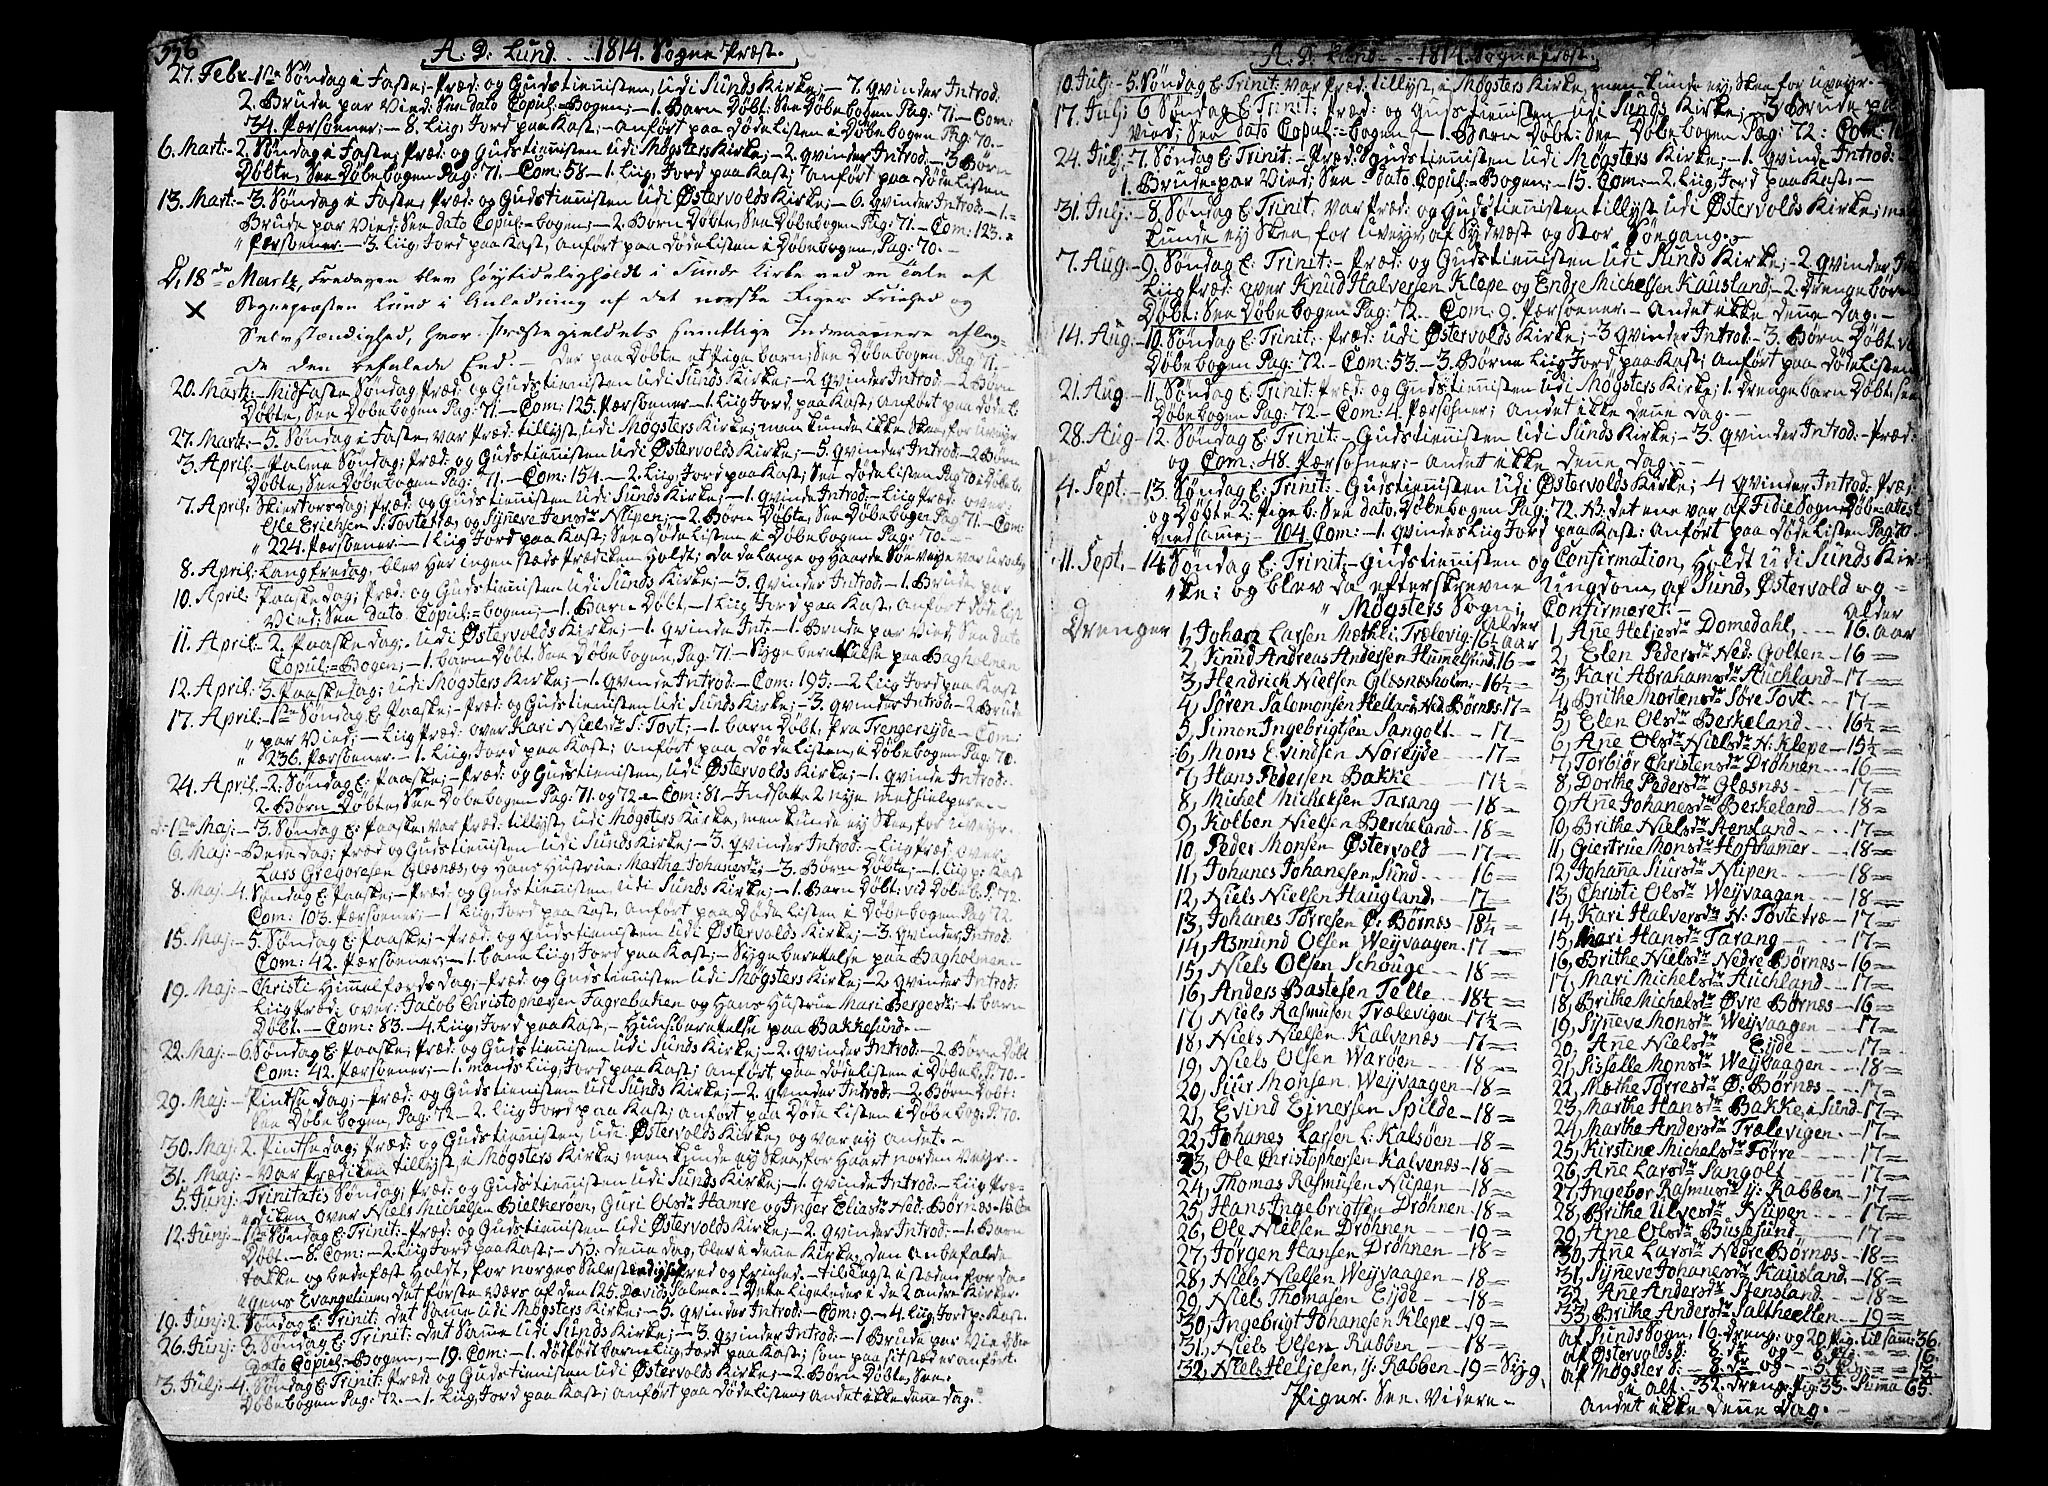 556
A. D. Lund - - 1814. Sogne Præst.
27. Febr. 1ste Søndag i Faste; Præd: og Gudstienisten, Udi Sunds Kirke; - 7. qvinder Introd.
2. Brude par Vied: See dato Copul:=Bogen; - 1. Barn Døbt: See Døbebogen Pag: 71. - Com:
34. Pærsoener; - 8. Liig; Jord paa Kast; - Anført paa Døde Listen i Døbebogen Pag: 70. -
6. Mart: - 2. Søndag i Faste; Præd: og Gudstienisten Udi Møgsters Kirke; - 2. qvinder Introd: - 3. Børn
Døbte, See Døbebogen Pag: 71. - Com: 58 - 1. Liig; Jord paa Kast; Anført paa Døde Listen
13. Mart: - 3. Søndag i Faste; Præd: og Gudstienisten Udi Østervolds Kirke; - 6. qvinder Introd: - 1.
Brude par Vied: See dato Copul:=bogen; - 2. Børn Døbte, See Døbebogen Pag: 71. - Com: 123.
Pærsoener - 3. Liig; Jord paa Kast; Anført paa Døde Listen i Døbebogen, Pag: 70. -
D. 18de Martz, Fredagen blev høytideligholdt i Sunds Kirke ved en Tale af
Sognepræsten Lund i Anledning af det norske Riges Friehed og
Selvstændighed, hvor Præstegieldets samtlige Indvaanere aflag-
de den befalede Eed. - Der paa Døbte et Pige barn; See Døbebogen Pag: 71. -
20. Martz: - Midfaste Søndag; Præd: og Gudstienisten Udi Sunds Kirke; - 2 qvinder Introd: - 2 Børn
Døbte, See Døbebogen Pag: 71. - Com: 125. Pærsoener - 1. Liig Jord paa Kast; Anført paa døde L:
27. Martz: - 5. Søndag i Faste, var Præd: tillyst, Udi Møgsters Kirke; men kunde ikke Skee, for Uveyr
3. April: - Palme Søndag; Præd: og Gudstienisten Udi Østervolds Kirke; - 5. qvinder Introd: - 2 Børn
Døbte, See Døbebogen Pag: 71. - Com: 154. - 2. Liig Jord paa Kast; See Døde Listen Pag 70 i Døbeb:
7. April: Skiertorsdag; Præd: og Gudstienisten Udi Sunds Kirke; - 1. qvinde Introd: - Liig Præd: over:
Ole Erichsen S: Tovte, og Synneve Jensdr Nupen; - 2. Børn Døbte, See Døbebogen Pag 71. - Com:
224. Pærsoener - 1 Liig Jord paa Kast; See Døde Listen i Døbebogen Pag: 70. -
8. April: Langfredag, blev Her ingen stæds Prædiken Holdt; da de lange og Haarde Søeveye var
10. April: Paaske dag; Præd: og Gudstienisten Udi Sunds Kirke; - 3. qvinder Introd: - 1. Brude par
Vied; See dato Copul:=bogen; - 1. Barn Døbt, - 1 Liig Jord paa Kast, Anført døde List
11. April: - 2. Paaske dag; Udi Østervolds Kirke; - 1. qvinde Int: - 1. Brude par Vied, See dato
Copul:=Bogen; - 1. barn Døbt. See Døbebogen, Pag: 71 - Syge berettelse paa Bagholmen
12. April: 3. Paaskedag; Udi Møgsters Kirke; - 1. qvinde Introd: - Com: 195: - 2 Liig Jord paa Kast
17. April: - 1ste Søndag E: Paaske; - Præd: og Gudstienisten Udi Sunds Kirke; - 3. qvinder Introd: - 2 Brude
par Vied; - Liig Præd: over Kari Nielsdr S: Tovt; - 1 barn Døbt, fra Trengereyde - Com:
236. Pærsoener. - 1. Liig, Jord paa Kast; Anført paa døde Listen, i Døbebogen Pag: 70.
24. April: - 2. Søndag E: Paaske; - Præd: og Gudstienisten, Udi Østervolds Kirke; - 1. qvinde Introd:
2. Børn Døbte, See Døbebogen Pag: 71 og 72. - Com: 81. - Indsatte 2 nye medhielpere. -
1ste Maj: - 3. Søndag E: Paaske, var Præd: tillyst, Udi Møgsters Kirke, men kunde ey Skee, for Uveyr.
6. Maj: - Bede dag; Præd og Gudstienisten Udi Sunds Kirke; - 3. qvinder Introd: - Liig Præd. over
Lars Gregoresen Glesnæs, og Hans Hustrue Martha Johannesdr; - 3. Børn Døbte; - 1. Liig p: Kast
8. Maj. 4. Søndag E: Paaske; - Præd: og Gudstienisten Udi Sunds Kirke; - 1. Barn Døbt. vid Døbeb. P: 72.
Com: 103. Pærsoener; - 1 Liig; Jord paa Kast, Anført paa Døde Listen i Døbebogen Pag 72.
15. Maj: - 5. Søndag E: Paaske; - Præd: og Gudstienisten Udi Østervolds Kirke; - 3. qvinder Introd:
Com: 42. Pærsoener; - 1. bane Liig; Jord paa Kast; - Syge berettelse paa Bagholmen. -
19. Maj: - Christi Himmelfærds dag; - Præd: og Gudstienisten Udi Møgsters Kirke; - 2 qvinder Introd:
Liig Præd: over: Jacob Christophersen Fagrebakken og Hans Hustrue Mari Bergesdr; - 1. barn
Døbt. - Com: 83. - 4. Liig; Jord paa Kast, - Huusberettelse paa Bakkesund. -
22. Maj: - 6. Søndag E: Paaske; Præd: og Gudstienisten Udi Sunds Kirke; - 2. qvinder Introd: - 2. Børn Døbt
Com: 42. Pærsoener; - 1. mands Liig; Jord paa Kast; Anført, paa døde Listen i Døbeb. P: 70. -
29. Maj: - Pintse dag; - Præd: og Gudstienisten Udi Sunds Kirke; - 2. qvinder Introd: - 2. Børn Døbt:
See Døbebogen, Pag: 72 - 2. Liig Jord paa Kast; Anført paa Døde Listen i Døbebog: P: 70.
30. Maj: 2. Pintsedag; Præd: og Gudstienisten, Udi Østervolds Kirke, og var ey andet. -
31. Maj: - Var Prædiken tillyst i Møgsters Kirke; men kunde ey Skee, for Haart norden Veyr. -
5. Junj: Trinitatis Søndag; Præd: og Gudstienisten Udi Sunds Kirke; - 1. qvinde Introd: - Liig Præ-
diken over Niels Michelsen Bielkerøen, Guri Olsdr Hamre og Inger Eliasdr Ned: Børnæs - 15. Com
12. Junj: - 1ste Søndag E: Trinit: Præd: og Gudstienisten Udi Østervolds Kirke; - 2. qvinder Introd: - 1. Barn
Døbt. - 8. Com: - 2. Liig Jord paa Kast; - NB: denne dag, blev i denne Kirke, den anbefalde
takke og bedefæst Holdt, for norges Selvstendighed, fred og friehed. - tillægst istæden for da-
gens Evangelium, det første Værs af den 125. Davids Salme. - Dette ligeledes i de 2 andre Kirker
19. Junj: 2. Søndag E: Trinit: det Samme Udi Møgsters Kirke; - 5. qvinder Introd: - Com: 9. - 4. Liig, Jord p. Kast.
26. Junj: 3. Søndag E: Trinit: det Samme Udi Sunds Kirke; - 3. qvinder Introd: - 1 Brude par Vied, See
Dato Copul:=Bogen, - 19. Com: - 1. dødfødt barne Liig; Jord paa Kast; som paa sit stæd er anført.
3. Julj: - 4. Søndag E: Trinit: Præd: og Gudstienisten Udi Østervolds Kirke; - 2. Børn Døbte, See
Døbebogen Pag: 72. - 1. Liig, Jord paa Kast; Anført paa Døde Listen, Andet ikke denne dag.
A. D. Lund - - - 1814. Sogne Præst.
10. Julj: - 5. Søndag E: Trinit: var Præd: tillyst, i Møgsters Kirke, men kunde ey Skee for Uveyr. -
17. Julj: 6. Søndag E: Trinit: Præd: og Gudstienisten Udi Sunds Kirke; - 3 Brude par
Vied; See dato Copul:=bogen - 1. Børn Døbt: See Døbebogen Pag: 72: Com:
24. Julj: - 7. Søndag E: Trinit: - Præd: Gudstienisten Udi Møgsters Kirke; - 1. qvinde Introd:
1. Brude=par Vied; See Dato Copul:=Bogen; - 15. Com: - 2. Liig, Jord paa Kast. -
31. Julj: - 8. Søndag E: Trinit: var Præd: og Gudstienisten tillyst Udi Østervolds Kirke; men
kunde ey Skee, for Uveyr, af Sydvæst og Stor Søegang. -
7. Aug: - 9. Søndag E: Trinit: - Præd: og Gudstienisten Udi Sunds Kirke; - 2. qvinder Int
Liig Præd: over Knud Halversen Klepe og Endre Michelsen Kausland - 2. Drenge børn
Døbt: See Døbebogen Pag: 72. - Com: 9. Pærsoener - Andet ikke denne Dag. -
14. Aug: - 10. Søndag E: Trinit: - Præd: Udi Østervolds Kirke; - 3 qvinder Introd: - 3. Børn Døbt.
Døbebogen Pag: 72. - Com: 53. - 3. Børne Liig Jord paa Kast; Anført paa døde Listen
21. Aug - 11. Søndag E: Trinit: Præd: og Gudstienisten Udi Møgsters Kirke; 1. drenge barn Døbt. See
Døbebogen Pag: 72 - Com: 4. Pærsoner; Andet ikke dene dag. -
28. Aug - 12. Søndag E: Trinit: - Gudstienisten Udi Sunds Kirke; - 3. qvinder Introd: - Præd:
og Com: 48. Pærsoner; - Andet ikke dene dag. -
4. Sept: - 13. Søndag E: Trinit: - Gudstienisten Udi Østervolds Kirke; 4 qvinder Introd: Præd:
og Døbte 2: Pige b. See dato, Døbebogen Pag: 72. NB. det ene var af Fidie Sogn Døbe=atest
med samme; - 104. Com: - 1. qvindes Liig Jord paa Kast: Anført paa Døde Listen Pag: 70 -
11. Sept. - 14 Søndag E: Trinit: - Gudstienisten og Confirmation, Holdt Udi Sunds Kir-
ke; og blev da efterskrevne Ungdom, af Sund, Østervold og =
Møgsters Sogn; Confirmeret: -
Drenger
Alder
1, Johan Larsen Mæthli Trælevig - 16½ aar
2, Knud Andreas Andersen Hummelsund 16 -
3, Hendrick Nielsen Glæsnæsholm: 16½ -
4, Søren Salomonsen Hellan Ned Børnæs. 17 -
5, Simon Ingebrigtsen Sangolt - 17 -
6, Mons Evindsen Noreyde - 17 -
7, Hans Pedersen Bakke - 17½ -
8, Michel Michelsen Tarang - 18 -
9, Kolben Nielsen Bercheland - 18 -
10, Peder Monsen Østervold - 17 -
11, Johanes Johanesen Sund - 16 -
12, Niels Nielsen Haugland. - 17 -
13, Johanes Torresen Ø: Børnæs - 18½ -
14, Asmund Olsen Weyvaagen - 17 -
15, Niels Olsen Schouge - 18 -
16, Anders Bastesen Telle - 18½ -
17, Niels Rasmusen Trælevigen - 17½ -
18, Niels Nielsen Kalvenæs - 17 -
19, Niels Olsen Warøen - 18 -
20, Siur Monsen Weyvaagen - 18 -
21, Evind Ejnersen Spilde - 18 -
22, Johanes Larsen L: Kalsøen - 18 -
23, Ole Christophersen Kalvenæs - 18 -
24, Thomas Rasmusen Nupen - 18 -
25, Hans Ingebrigtsen Drøhnen - 18 -
26, Ole Nielsen Drøhnen - 19 -
27, Jørgen Hansen Drøhnen - 18 -
28, Niels Nielsen Weyvaagen - 18 -
29, Niels Thomasen Eyde - 18 -
30, Ingebrigt Johanesen Klepe - 19 -
31, Niels Olsen Rabben - 18 -
32, Niels Heljesen, ij: Rabben - 19 =
Piger See Videre -
Alder
1, Ane Heljesdr Domedahl, - 16. aar
2, Elen Pedersdr Ned: Golten - 16 =
3, Kari Abrahamsdr Auchland - 17 =
4, Brithe Mortensdr Søre Tovt - 17 =
5, Elen Olsdr Berkeland - 16½ =
6, Ane Olsdr Nielsdr N: Klepe - 15½ =
7, Torbiør Christensdr Drøhnen - 16 =
8, Dorthe Pedersdr Glæsnæs - 17 =
9, Ane Johanesdr Berkeland - 18 =
10, Brithe Nielsdr Stensland - 17 =
11, Giertrue Monsdr Hofthamer - 18 =
12, Johanna Siursdr Nupen - 18 =
13, Christi Olsdr Weyvaagen - 18 =
14, Kari Halversdr N: Tovte træ - 17 =
15, Mari Hansdr Tarang - 17 =
16, Brithe Nielsdr Nedre Børnæs - 16 =
17, Mari Michelsdr Auchland - 17 =
18, Brithe Michelsdr Øvre Børnæs - 16 =
19, Synneve Monsdr Weyvaagen - 17 =
20, Ane Nielsdr Eyde - 17 =
21, Sisselle Monsdr Weyvaagen - 18 =
22, Mæthe Torresdr Ø: Børnæs - 17 =
23, Marthe Hansdr Bakke, i Sund - 17 =
24, Marthe Andersdr Trælevigen - 17 =
25, Kirstine Michelsdr Førre - 17 =
26, Ane Larsdr Sangolt - 17 =
27, Ingebor Rasmusdr ij: Rabben - 17 =
28, Brithe Ulvesdr Nupen - 17 =
29, Ane Olsdr Busesund - 17 =
30, Ane Larsdr Nedre Børnæs - 18 =
31, Synneve Johanesdr Kausland - 18 =
32, Ane Andersdr Stensland - 18 =
33, Brithe Andersdr Saltheellen - 19 =
af Sunds Sogn, 16 dreng: og 20 Pig: til sam: 36.
af Østervolds d:
af Møgster d:
i alt. - 32. dreng: Pig: 33. Suma 65.
Andet ikke denne Dag. -